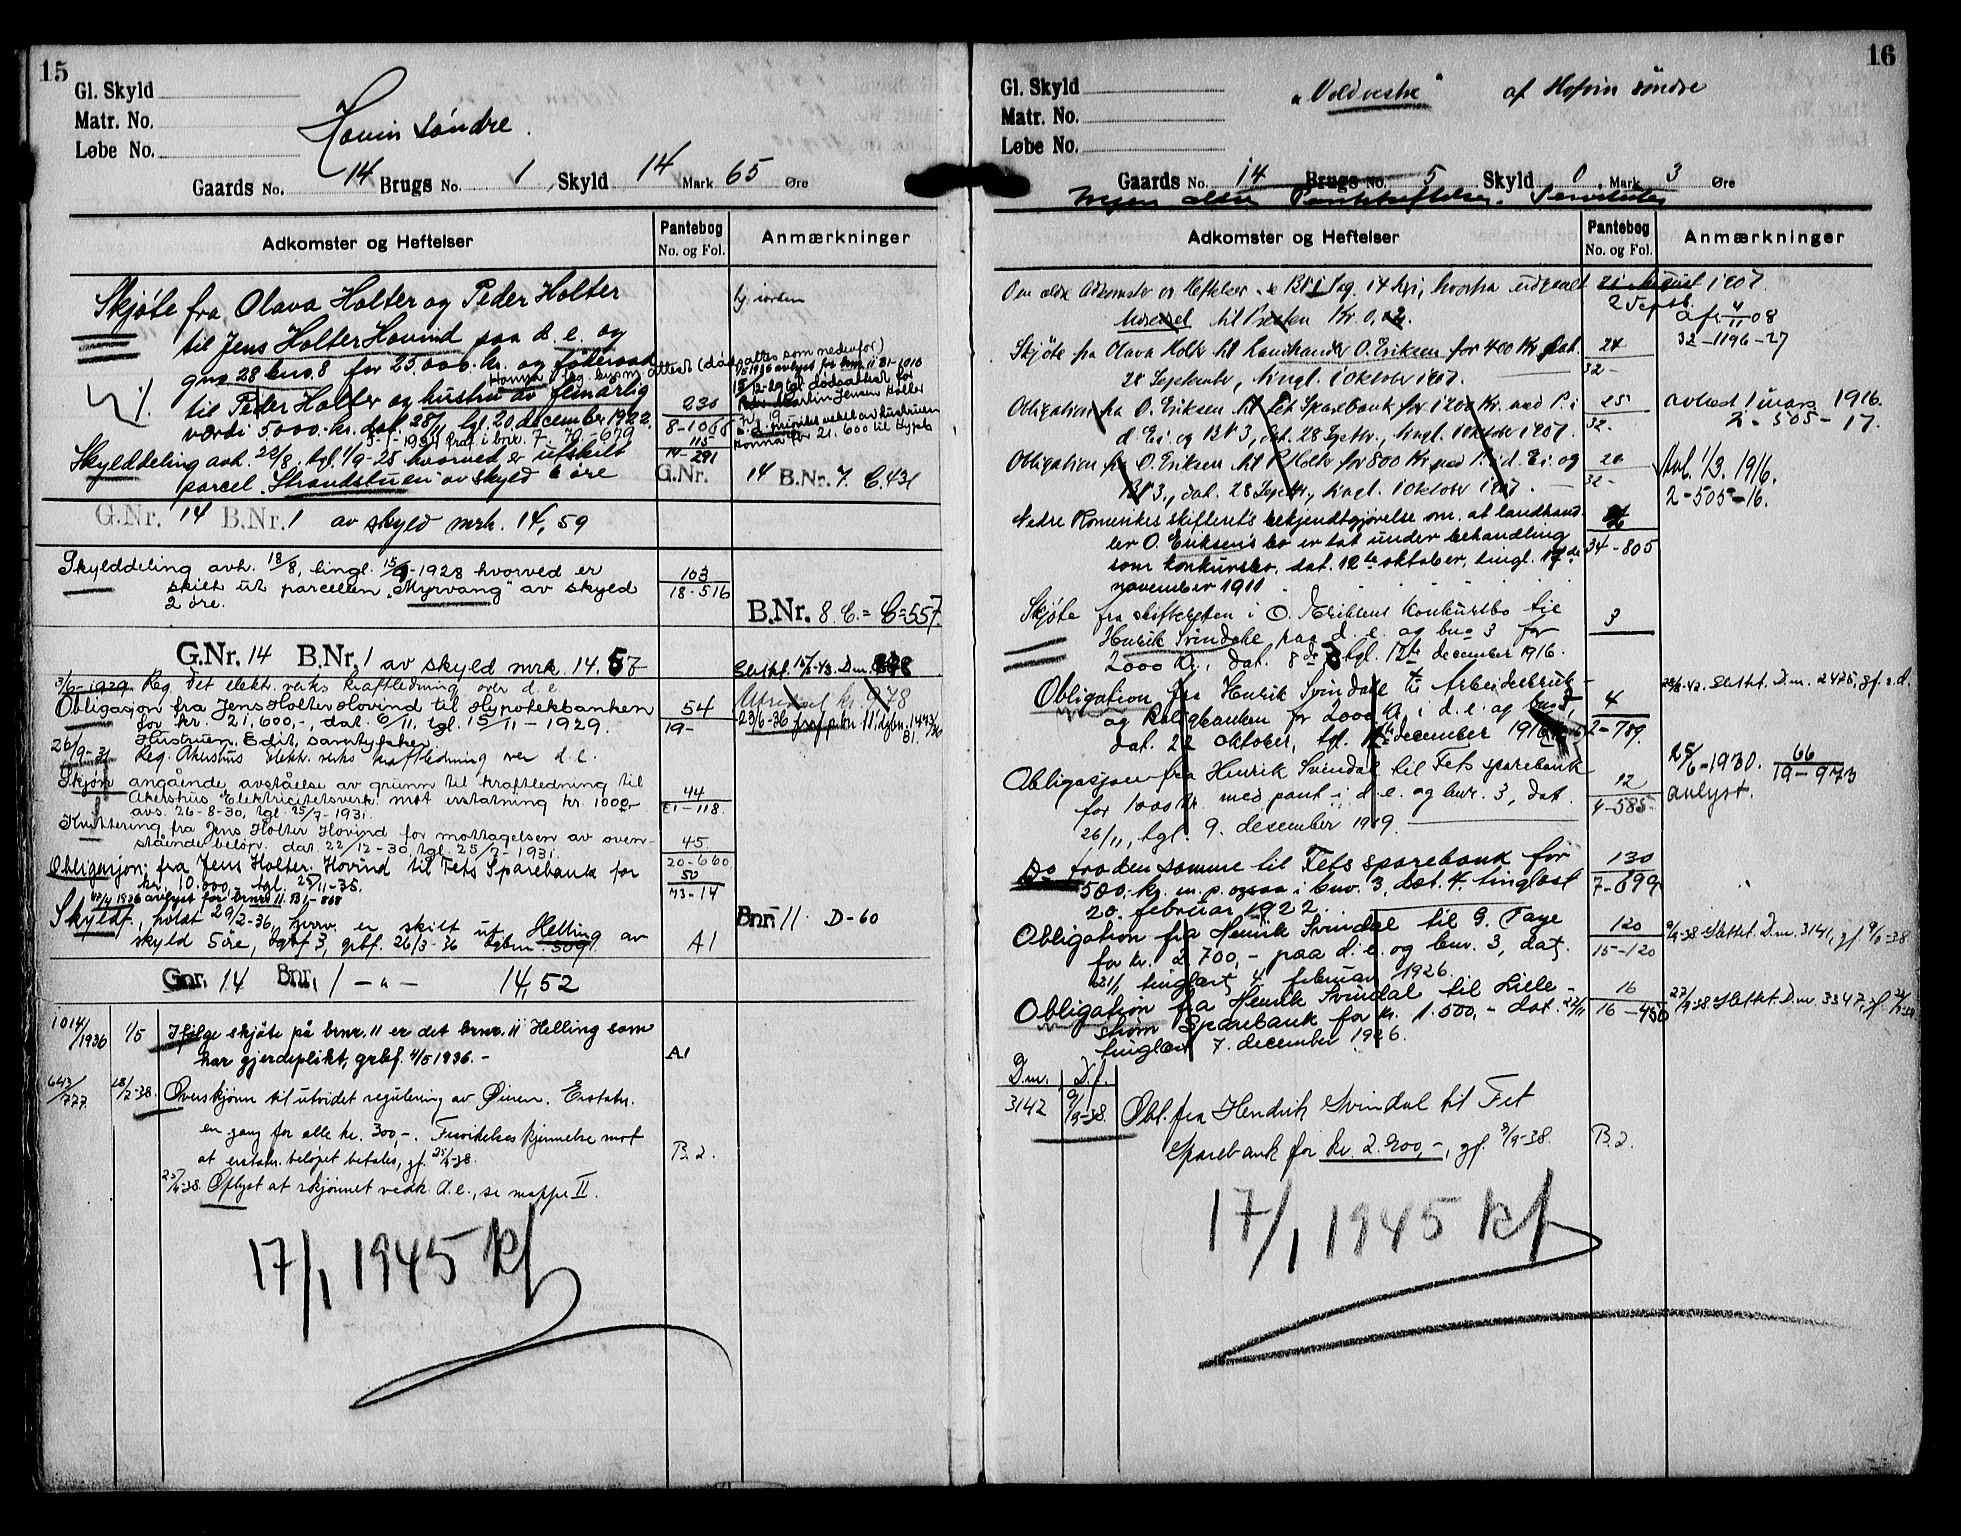 15
Gl. Skyld
Matr. No.
Løbe No.
Hovin søndre.
Gaards No. 14 Brugs No. 1 Skyld 14 Mark 65 Øre
Adkomster og Heftelser
Pantebog
No. og Fol.
Anmærkninger
Skjøte fra Olava Holter og Peder Holter
til Jens Holter Hovind paa d. e. og
gnr. 28 bno. 8 for 25.000.- kr. og föderaad
til Peder Holter og hustru av femaarlig
værdi 5000.- kr. dat. 28/11 tgl. 20 december 1922.
230
8-1068
Skylddeling avh. 22/8, tgl. 1/9-25 hvorved er utskilt
parcel "Strandstuen" av skyld 6 öre
115
14-291
G.Nr. 14 B.Nr. 7. C.431
G.Nr. 14 B.Nr. 1 av skyld mrk. 14,59
Skylddeling avh. 18/8, tingl. 15/9-1928 hvorved er
skilt ut parcellen "Myrvang" av skyld
2 öre.
103
18-516
B.Nr. 8 C. = C=557
G.Nr. 14 B.Nr. 1 av skyld mrk. 14.57
3/6-1929 Reg. det elektr. verks kraftledning over d. e.
Obligasjon fra Jens Holter Hovind til Hypotekbanken
for kr. 21,600,-, dat. 6/11, tgl. 15/11-1929.
54
19-
26/9-31 Reg. Akershus Elektr. verks kraftledning over d. e.
Skjøn angående avståelse av grunn til kraftledning til
Akershus Elektricitetsverk mot erstatning kr. 1000,-
avs. 26-8-30, tgl. 25/7-1931.
44
21-118
Kvittering fra Jens Holter Hovind for mottagelsen av oven-
stående beløp. dat. 22/12-30, tgl. 25/7-1931.
45
20-660
Obligasjon fra Jens Holter Hovind til Fets Sparebank for
kr. 10.000,- tgl. 25/11-35.
50
73-14
Skyldf., holdt 29/2-36, hvorv. er skilt ut Helling av
skyld 5 öre, dgbf 3, grbf. 26/3-36 dgbnr. 509
A1
Bnr. 11 D-60
Gnr. 14 Bnr. 1 -"- 14,52
1014/1936 1/5 Ifølge skjøte på brnr. 11 er det brnr. 11 Helling som
har gjerdeplikt, grbf. 4/5 1936. -
A1
643/777 18/2-38. Overskjönn til utvidet regulering av Öieren. Erstatn.
en gang for alle kr. 300-.
at erstatn. beløpet betales, gf. 25/4-38.
B. 2.
25/4-38. Oplyst at skjønnet vedk. d. e., se mappe II.
17/1 1945 Kf
16
Gl. Skyld
Matr. No.
Løbe No.
"Voldvestre" af Hofvin søndre
Gaards No. 14 Brugs No. 5 Skyld 0 Mark 3 Øre
Ingen ældre Pantheftelser. Servitutter
Adkomster og Heftelser
Pantebog
No. og Fol.
Anmærkninger
Om ældre Adkomster og Heftelser se BN 1 Pag. 14 hvorfra udgaaet 21 August 1907.
Skjøte fra Olava Holter til Landhandler O. Eriksen for 400 Kr. dat.
28 September, tingl. 1 Oktober 1907.
24
32-
32-1196-27
Obligation fra O. Eriksen til Fet Sparebank for 1200 Kr. med P. i
d. Ei. og BN 3, dat. 28 Septbr., tingl. 1 Oktober 1907.
25
32-
avlæst 1 mars 1916.
2-505-17.
Obligation fra O. Eriksen til P. Holter for 800 Kr. med P. i d. Ei. og
BN 3., dat. 28 Septbr., tingl. 1 Oktober 1907.
26
32-
Avl. 1/3. 1916.
2-505-16.
Nedre Romerikes skifterets bekjendtgjørelse om, at landhand-
ler O. Eriksens bo er tat under behandling
som konkursbo, dat. 12te oktober, tingl. 17de
november 1911
34-805
Skjøte fra skifteretten i O. Eriksens Konkursbo til
Henrik Svindahl paa d. e. og bno 3 for
2000 Kr., dat. 8de, tgl. 12te december 1916.
3
Obligation fra Henrik Svindahl til Arbeiderbruk-
og Boligbanken for 2000 kr. i d. e. og bno 3
dat. 22 oktober, tgl. 12te december 1916
4
2-789.
Obligasjon fra Henrik Svindal til Fets sparebank
for 1000 kr. med pant i d. e. og bnr. 3, dat.
26/11, tgl. 9. desember 1919.
12
4-585-
25/6-1930. 66/19-973
avlyst.
Do fra den samme til Fets sparebank for
500.- kr. m. p. ogsaa i bnr. 3, dat. 4. tinglæst
20. februar 1922.
130
7-699
Obligation fra Henrik Svindal til G. Faye
for kr. 2 700,- paa d. e. og bnr. 3, dat.
21/1, tinglæst 4. februar 1926.
120
15-120
9/9-38 Slettet. D.nr. 3141, gf. 9/9-38.
Obligation fra Henrik Svindal til Lille-
strøm Sparebank for kr. 1.500,- dat. 27/11
tinglæst 7. december 1926.
16
16-450
D.nr. D.f.
3142 9/9-38. Obl. fra Hendrik Svindal til Fet
Sparebank for kr. 2.200,-, gf. 9/9-38.
B. 2.
17/1 1945 Kf